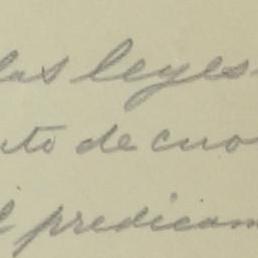 las leyes
to de cuo
predicam